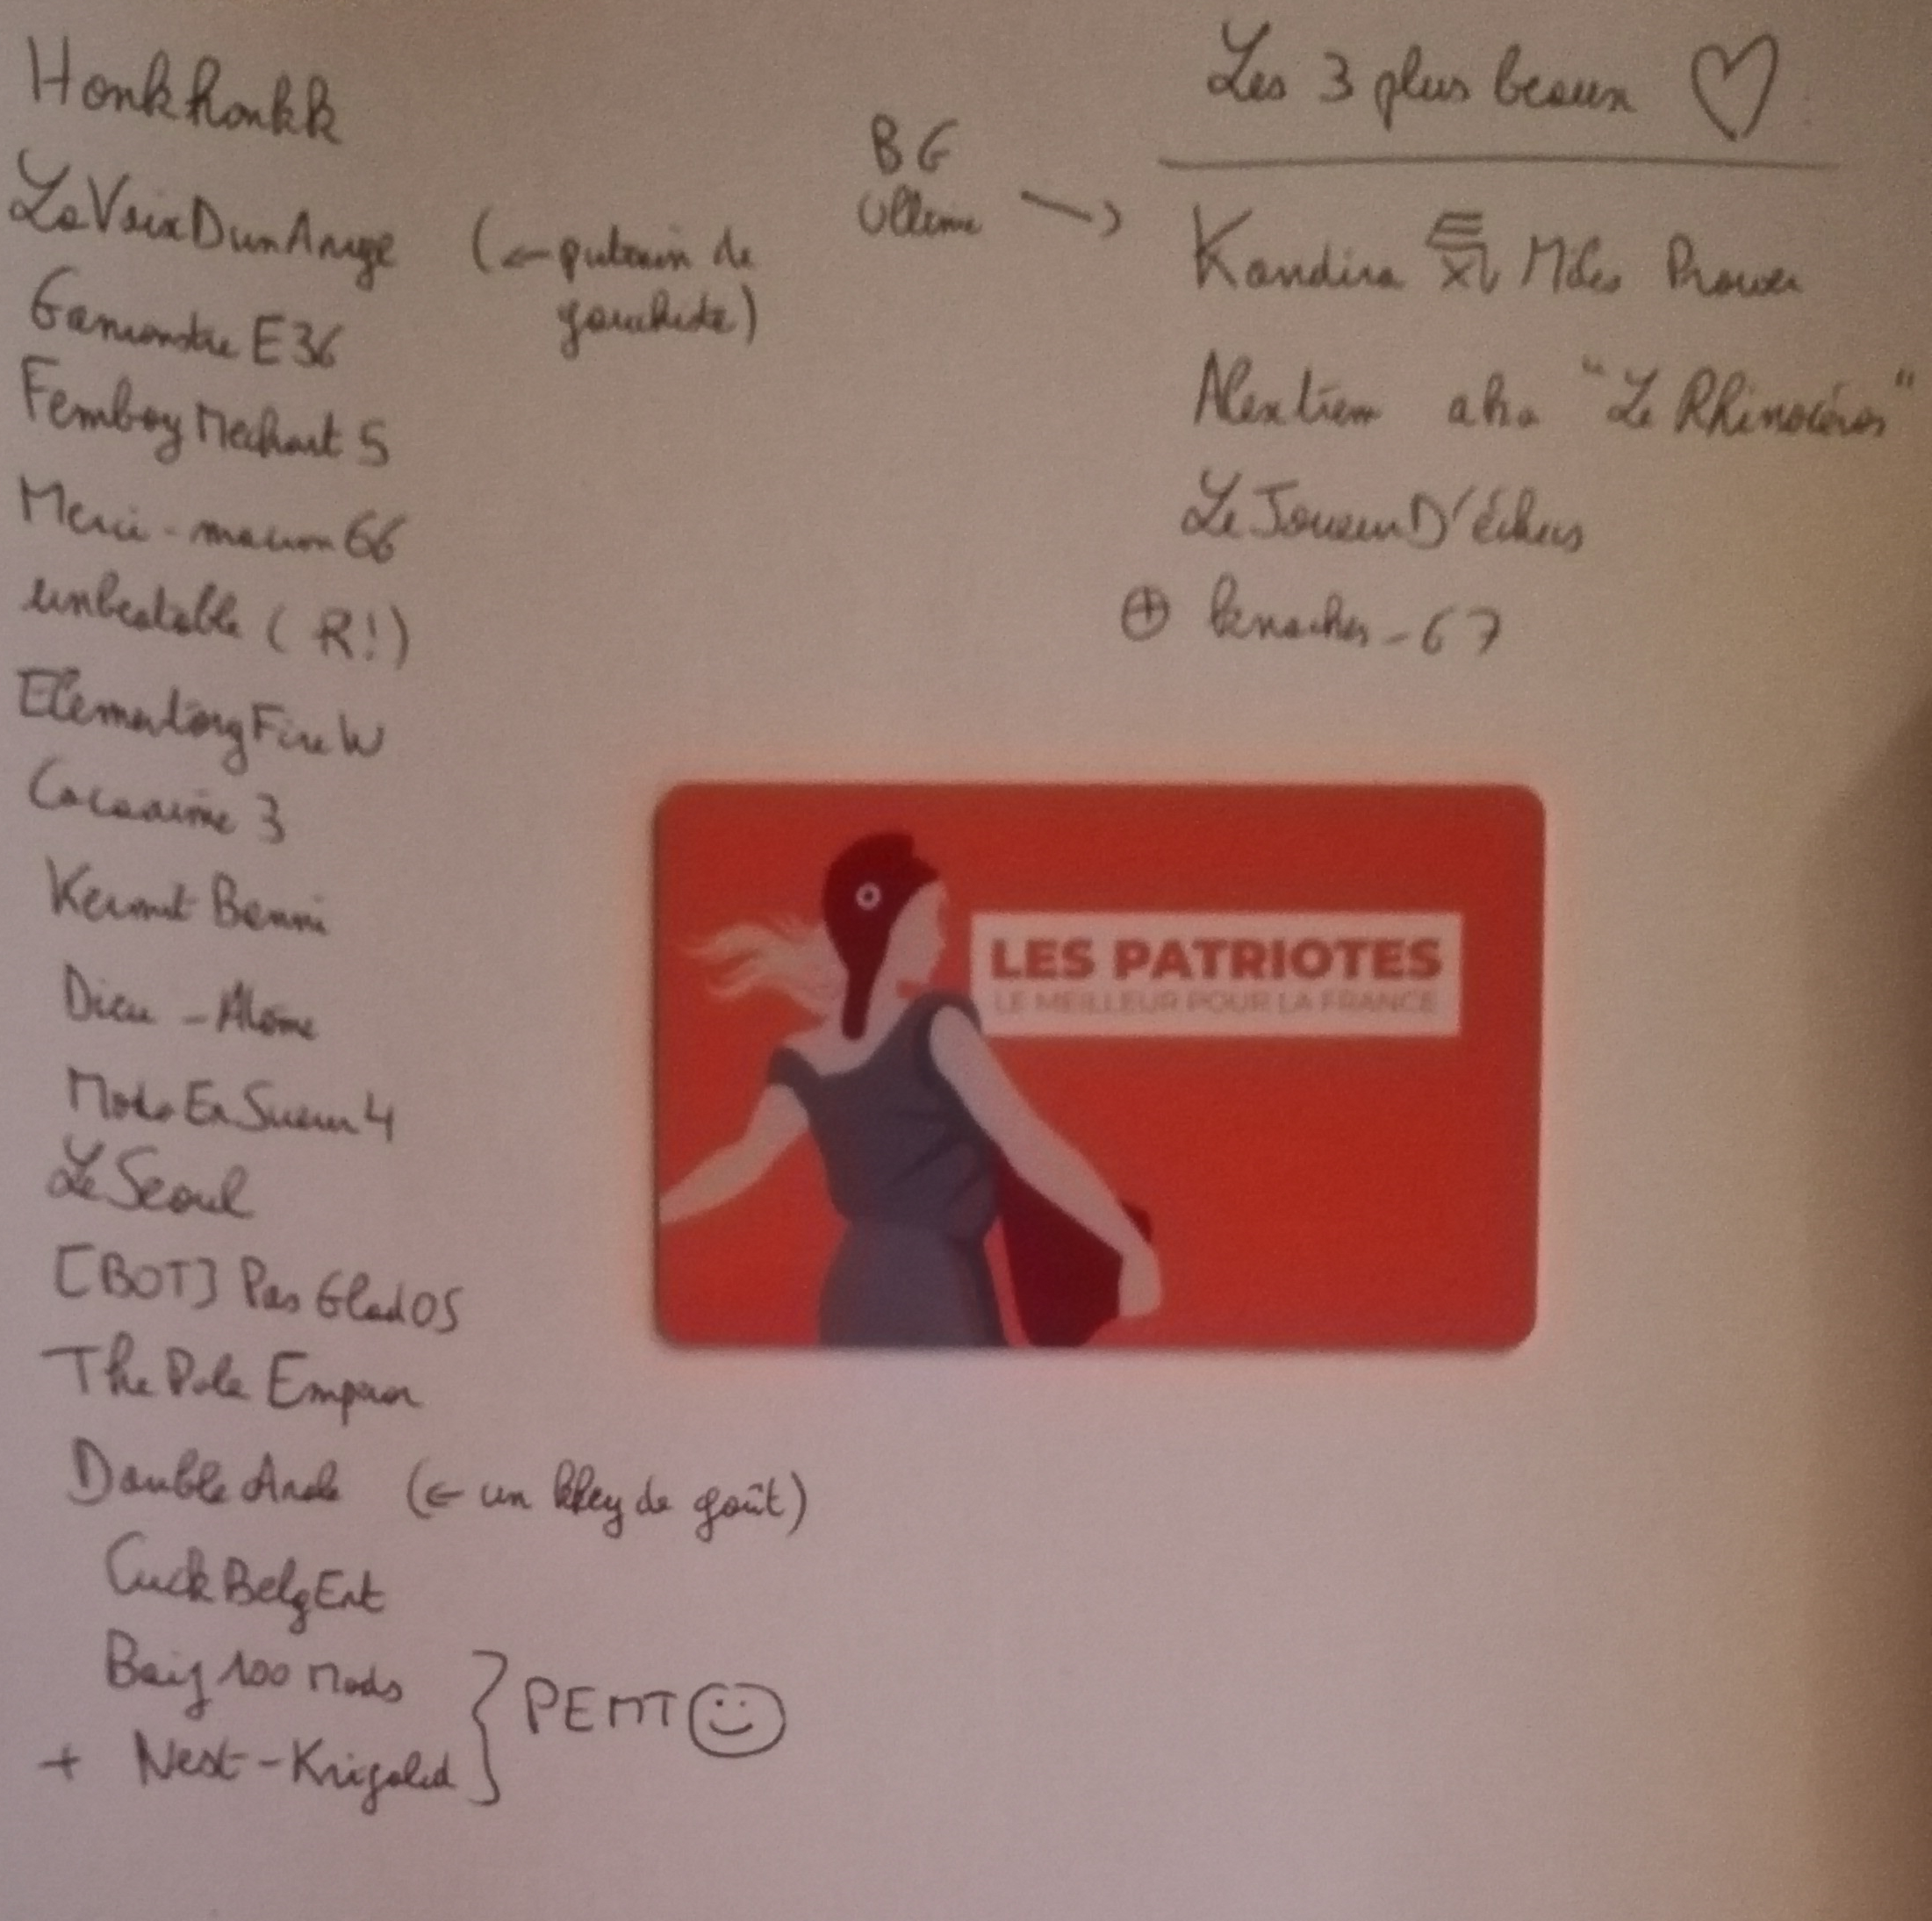 Honkhonkk
LaVoixDunAnge (← putain de
gauchiste)
E36
FemboyMechant5
Merci-macron66
unbeatable (R!)
ElementaryFireW
Cocaaine 3
Kermit Benni
Dieu-Atome
ModoEnSueur4
LeSeoul
[BOT] Pas GladOS
The Pole Empereur
Double Anale (← un khey de goût)
CuckBelgEnt
100 Mods
+ Nest-Krigaled
PEMT
Les 3 plus beaux ♡
BG
Ultime →
Kandira Miles Prower
Alextrem aka "Le Rhinocéros"
LeJoueurD'échecs
⊕ knackes-67
LES PATRIOTES
LE MEILLEUR POUR LA FRANCE